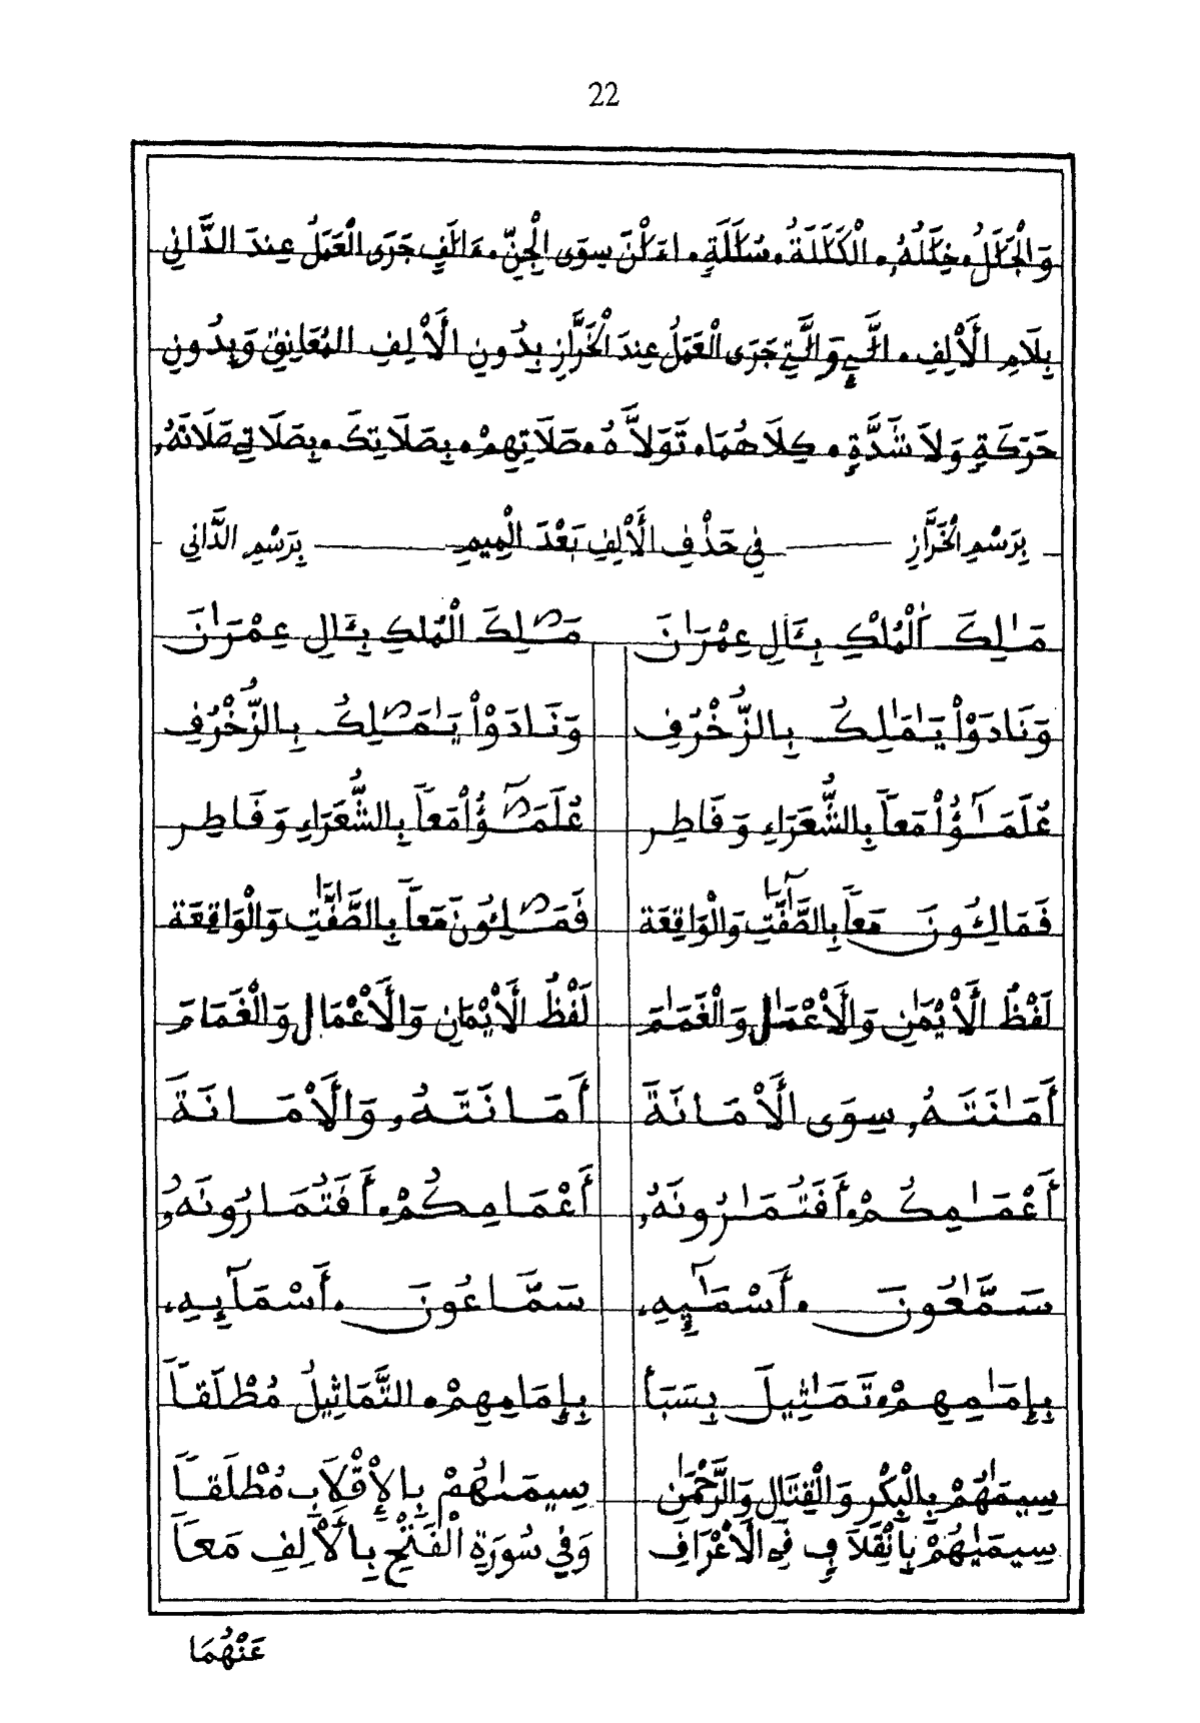 22
وَالْجَلَٰلُ۰ خِلَٰلُهُۥ۰ الْكَلَٰلَةُ۰ سُلَٰلَةٍ۰ اءَلَٰنَ سِوَى الْجِنِّ۰ فَالَفٍ جَرَى الْعَمَلُ عِندَ الدَّانِي
بِلَامِ الْأَلِفِ۰ الَّٰۓِ وَالَّٰتِے جَرَى الْعَمَلُ عِندَ الْخَرَّازِ بِدُونِ الْأَلِفِ الْمُعَانِقِ وَبِدُونِ
حَرَكَةٍ وَلَا شَدَّةٍ۰ كِلَاهُمَا۰ تَوَلَّاهُ۰ صَلَاتِهِمْ۰ بِصَلَاتِكَ۰ بِصَلَاتِي صَلَاتَهُۥ
بِرَسْمِ الْخَرَّازِ فِي حَذْفِ الْأَلِفِ بَعْدَ الْمِيمِ بِرَسْمِ الدَّانِي
مَٰلِكَ الْمُلْكِ بِـَٔالِ عِمْرَٰنَ مَٰلِكَ الْمُلْكِ بِـَٔالِ عِمْرَٰنَ
وَنَادَوْاْ يَٰمَٰلِكُ بِالزُّخْرُفِ وَنَادَوْاْ يَٰمَٰلِكُ بِالزُّخْرُفِ
عُلَمَٰٓؤُاْ مَعاً بِالشُّعَرَاءِ وَفَاطِر عُلَمَٰٓؤُاْ مَعاً بِالشُّعَرَاءِ وَفَاطِر
فَمَالِـُٔونَ مَعاً بِالصَّٰٓفَّٰتِ وَالْوَاقِعَة فَمَٰلِـُٔونَ مَعاً بِالصَّٰفَّٰتِ وَالْوَاقِعَة
لَفْظُ الْأَيْمَٰنِ وَالْأَعْمَٰلِ وَالْغَمَٰمَ لَفْظُ الْأَيْمَانِ وَالْأَعْمَالِ وَالْغَمَامَ
أَمَٰنَتَهُۥ سِوَى الْأَمَانَةَ أَمَانَتَهُۥ وَالْأَمَانَةَ
أَعْمَٰمِكُمْ۰ أَفَتُمَٰرُونَهُۥ أَعْمَامِكُمْ۰ أَفَتُمَارُونَهُۥ
سَمَّٰعُونَ ۰ أَسْمَٰٓئِهِۦ سَمَّاعُونَ ۰ أَسْمَآئِهِۦ
بِإِمَٰمِهِمْ۰ تَمَٰثِيلَ بِسَبَأ بِإِمَامِهِمْ۰ التَّمَاثِيلُ مُطْلَقاً
سِيمَٰهُمْ بِالْبِكْرِ وَالْقِتَالِ وَالرَّحْمَٰنِ سِيمَٰهُمْ بِالإِقْلَابِ مُطْلَقاً
سِيمَيٰهُمْ بِانْقِلَابٍ فِي الْأَعْرَافِ وَفِي سُورَةِ الْفَتْحِ بِالْأَلِفِ مَعاً
عَنْهُمَا